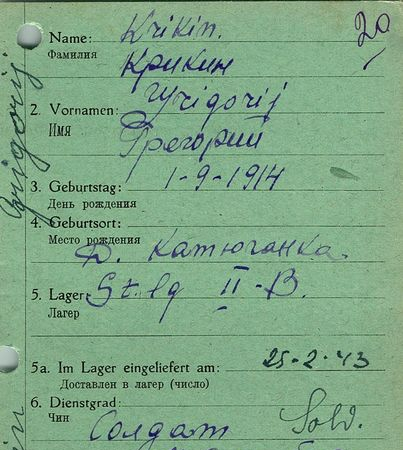 Name: Krikin.
20
Фамилия
Крикин
2. Vornamen: Grigorij
ИМЯ
Грегорий
3. Geburtstag: 1-9-1914
День рождения
4. Geburtsort:
Место рождения
Д. Катюганка
5. Lager: St. lg II-B.
Лагер
5a. Im Lager eingeliefert am: 25-2-43
Доставлен в лагер (число)
6. Dienstgrad: Sold.
Чин
Солдат
Grigorij